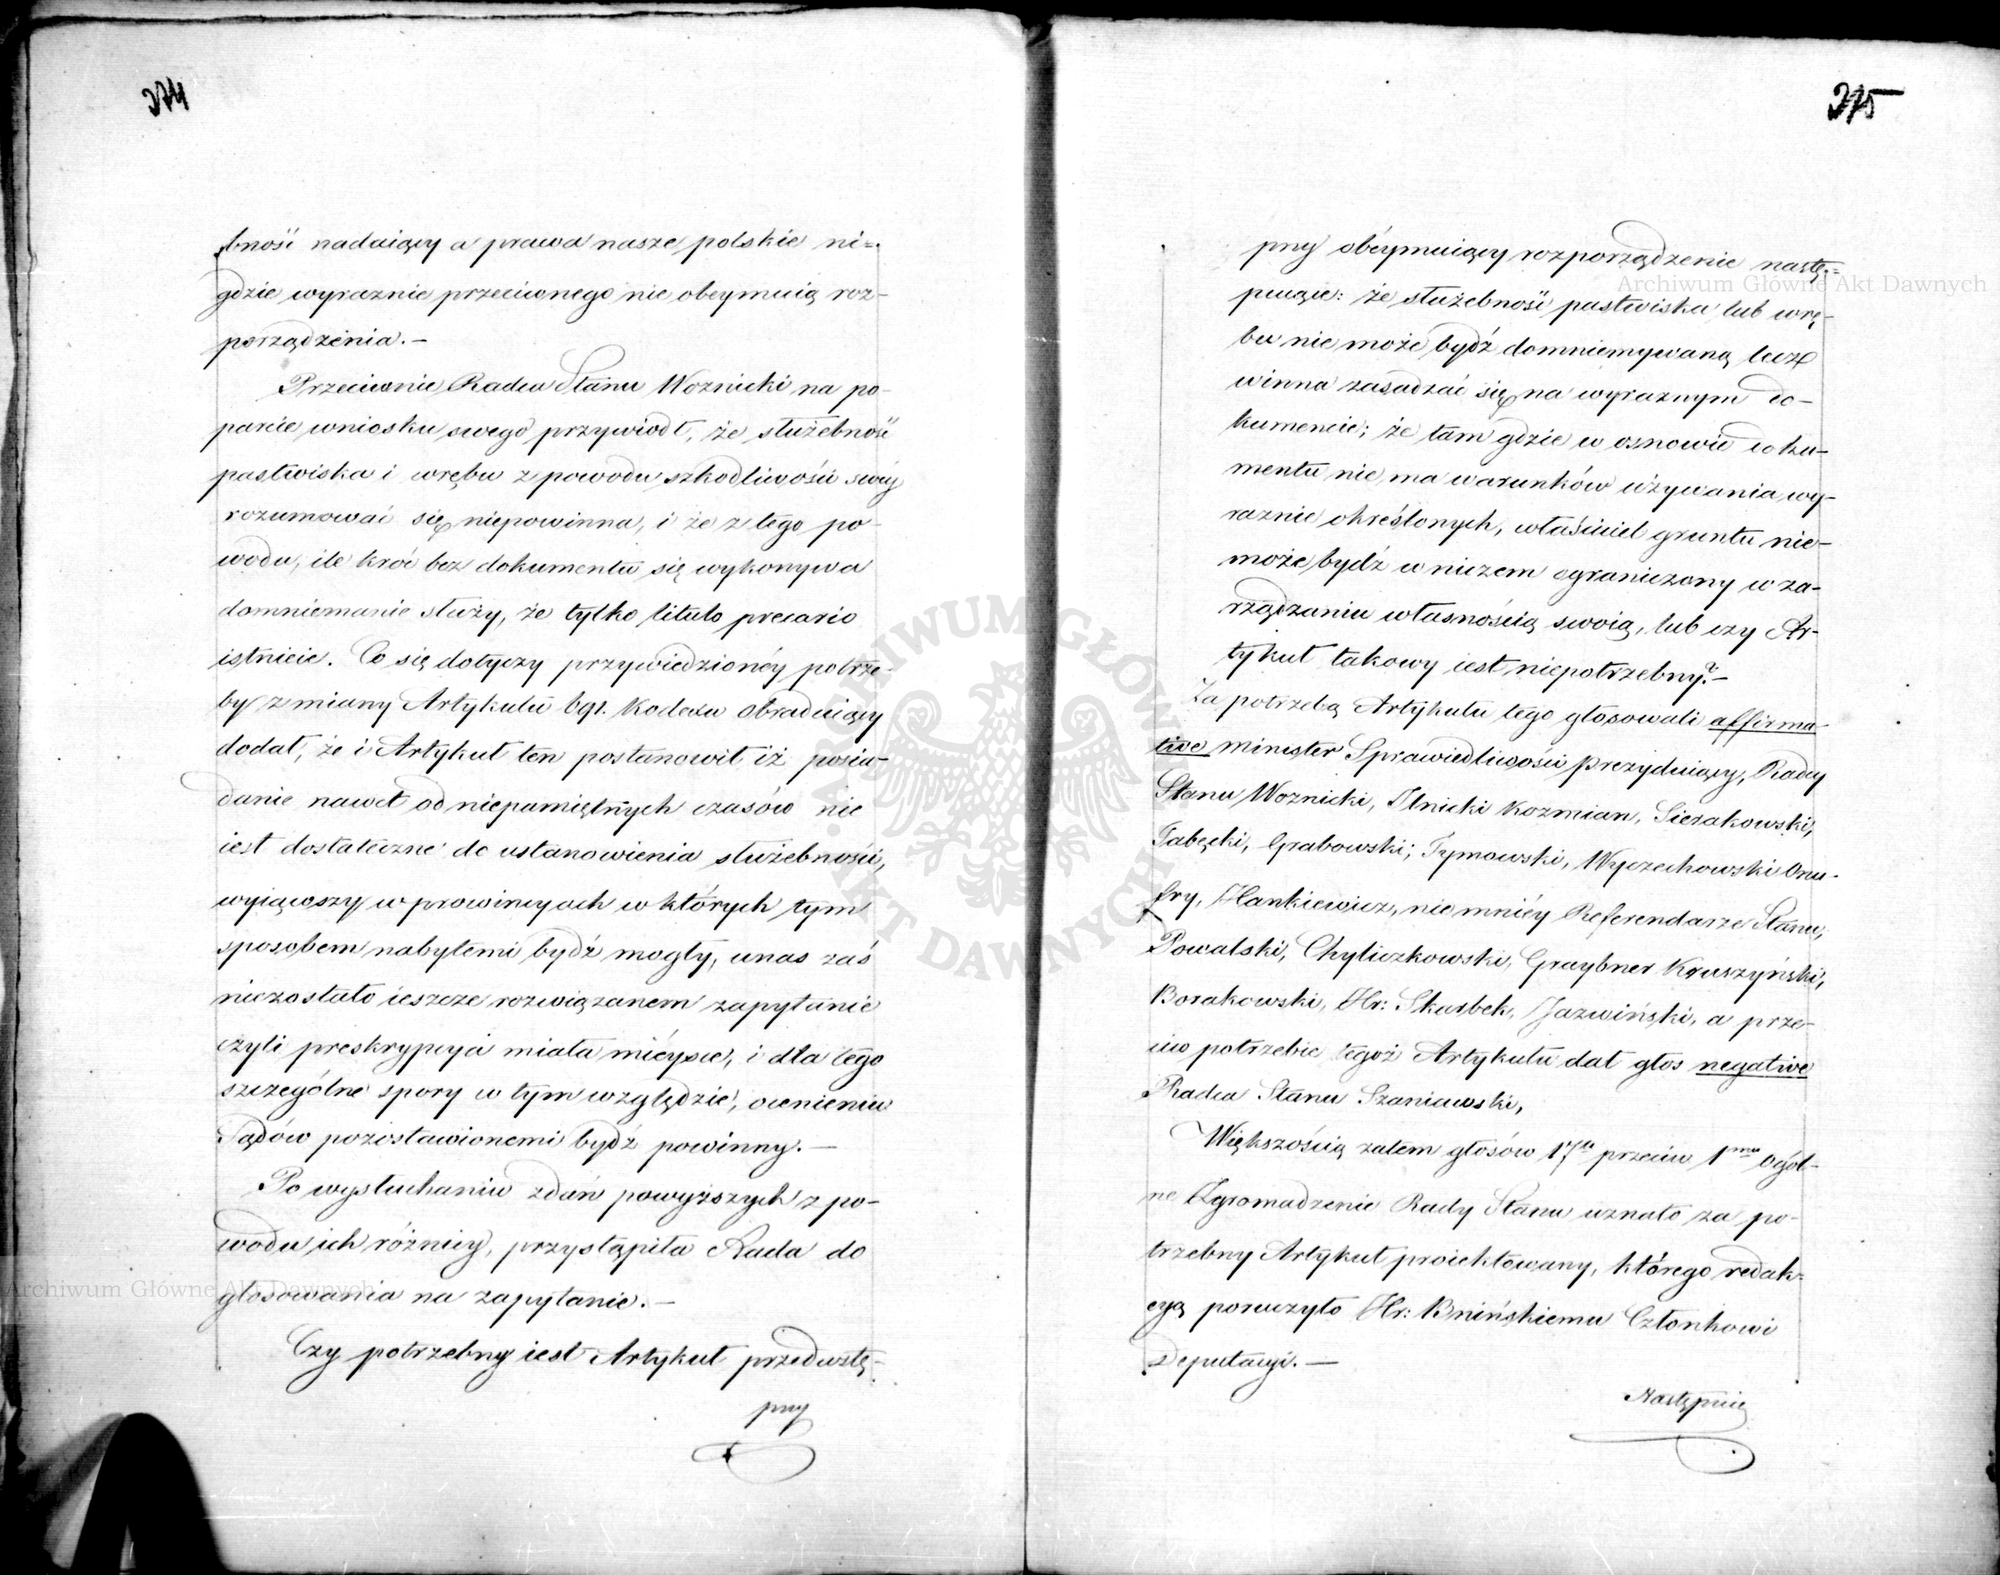 274
bność nadaiący a prawa nasze polskie ni=
gdzie wyraznie przeciwnego nic obeymuią roz-
porządzenia.-
Przeciwnie Radca Stanu Woznicki na po-
parcie wniosku swego przywiodł, że służebność
pastwiska i wrębu z powodu szkodliwości swéy
rozumować się niepowinna, i że z tego po-
wodu, ile kroć bez dokumentu się wykonywa
domniemanie służy, że tylko titulo precario
istnieie. Co się dotyczy przywiedzionéy potrze-
by zmiany Artykułu 691. Kodexu obraduiący
dodał, że i Artykuł ten postanowił iż posia-
danie nawet od niepamiętnych czasów nie
iest dostateczne do ustanowienia służebności,
wyiąwszy w prowincyach w których tym
sposobem nabytemi bydź mogły, unas zaś
niezostało ieszcze rozwiązanem zapytanie
czyli preskrypcya miała mieysce, i dla tego
szczególne spory w tym względzie, ocenieniu
Sądów pozostawionemi bydź powinny.-
Po wysłuchaniu zdań powyższych z po-
wodu ich różnicy, przystąpiła Rada do
głosowania na zapytanie.-
Czy potrzebny iest Artykuł przedwstę-
pny
275
pny obéymuiący rozporządzenie nastę-
puiące: że służebność pastwiska lub wrę-
bu nie może bydź domniemywaną lecz
winna zasadzać się na wyraznym do-
kumencie; że tam gdzie w osnowie doku-
mentu nie ma warunków używania wy-
raznie określonych, właściciel gruntu nie-
może bydź w niczem ograniczony w za-
rządzaniu własnością swoią, lub czy Ar-
tykuł takowy iest niepotrzebny?-
Za potrzebą Artykułu tego głosowali affirma-
tive Minister Sprawiedliwości Prezyduiący, Radcy
Stanu Woznicki, Ilnicki Kozmian, Sierakowski,
Tabęcki, Grabowski, Tymowski, Wyczechowski Onu-
fry, Hankiewicz, nie mniéy Referendarze Stanu,
Powalski, Chyliczkowski, Graybner Kruszyński,
Borakowski, Hr: Skarbek, Jazwiński, a prze-
ciw potrzebie tegoż Artykułu dał głos negative
Radca Stanu Szaniawski,
Większością zatem głosów 17tu przeciw 1mu Ogól-
ne Zgromadzenie Rady Stanu uznało za po-
trzebny Artykuł proiektowany, którego redak-
cyą poruczyło Hr: Bnińskiemu Członkowi
Deputacyi.-
Następnie
Archiwum Główne Akt Dawnych
Archiwum Główne Akt Dawnych
ARCHIWUM GŁÓWNE AKT DAWNYCH